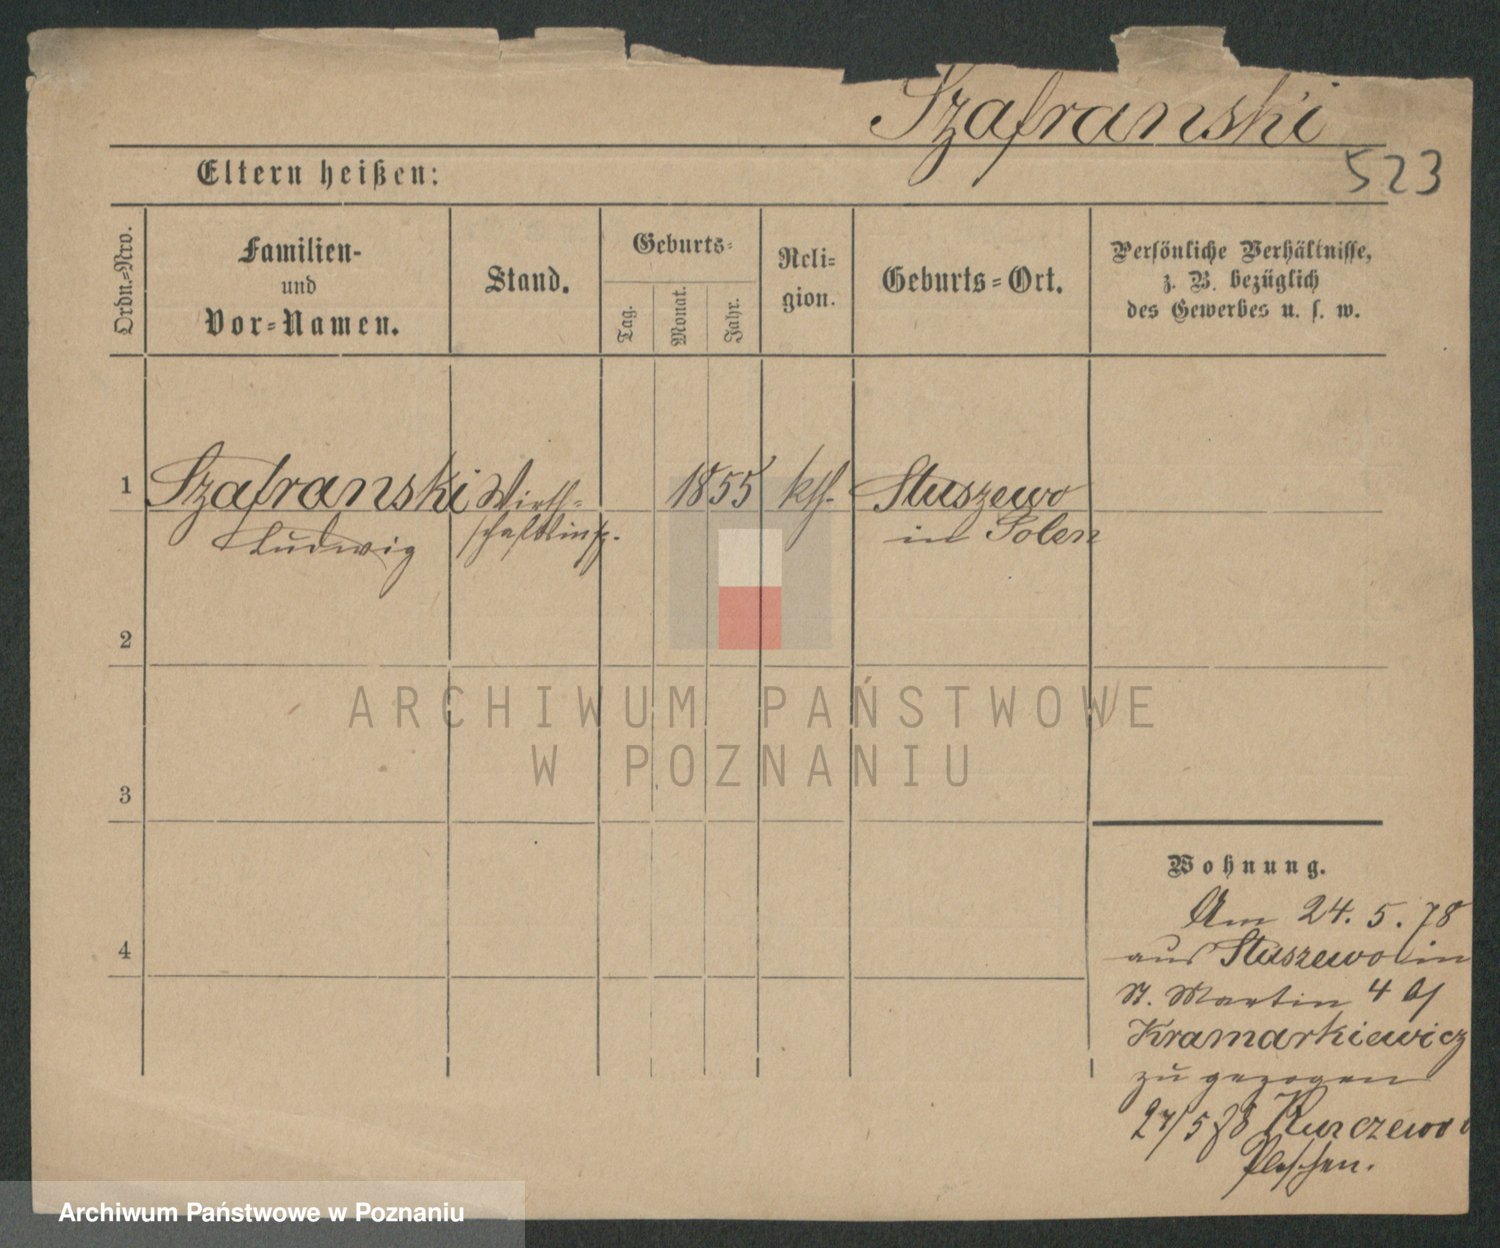 Szafranski
523
Eltern heißen:
Ordn.-Nro.
Familien-
und
Vor-Namen.
Stand.
Geburts-
Tag.
Monat.
Jahr.
Reli-
gion.
Geburts-Ort.
Persönliche Verhältnisse,
z. B. bezüglich
des Gewerbes u. s. w.
1 Szafranski Wirth- 1855 kth. Stuszewo
Ludwig schaftsinsp. in Polen
2
3
4
ARCHIWUM PAŃSTWOWE
W POZNANIU
Wohnung.
Am 24. 5. 78
aus Stuszewo in
St. Martin 4 b/
Kramarkiewicz
zu gezogen
27/5 78 Kurczewo
Pleschen.
Archiwum Państwowe w Poznaniu